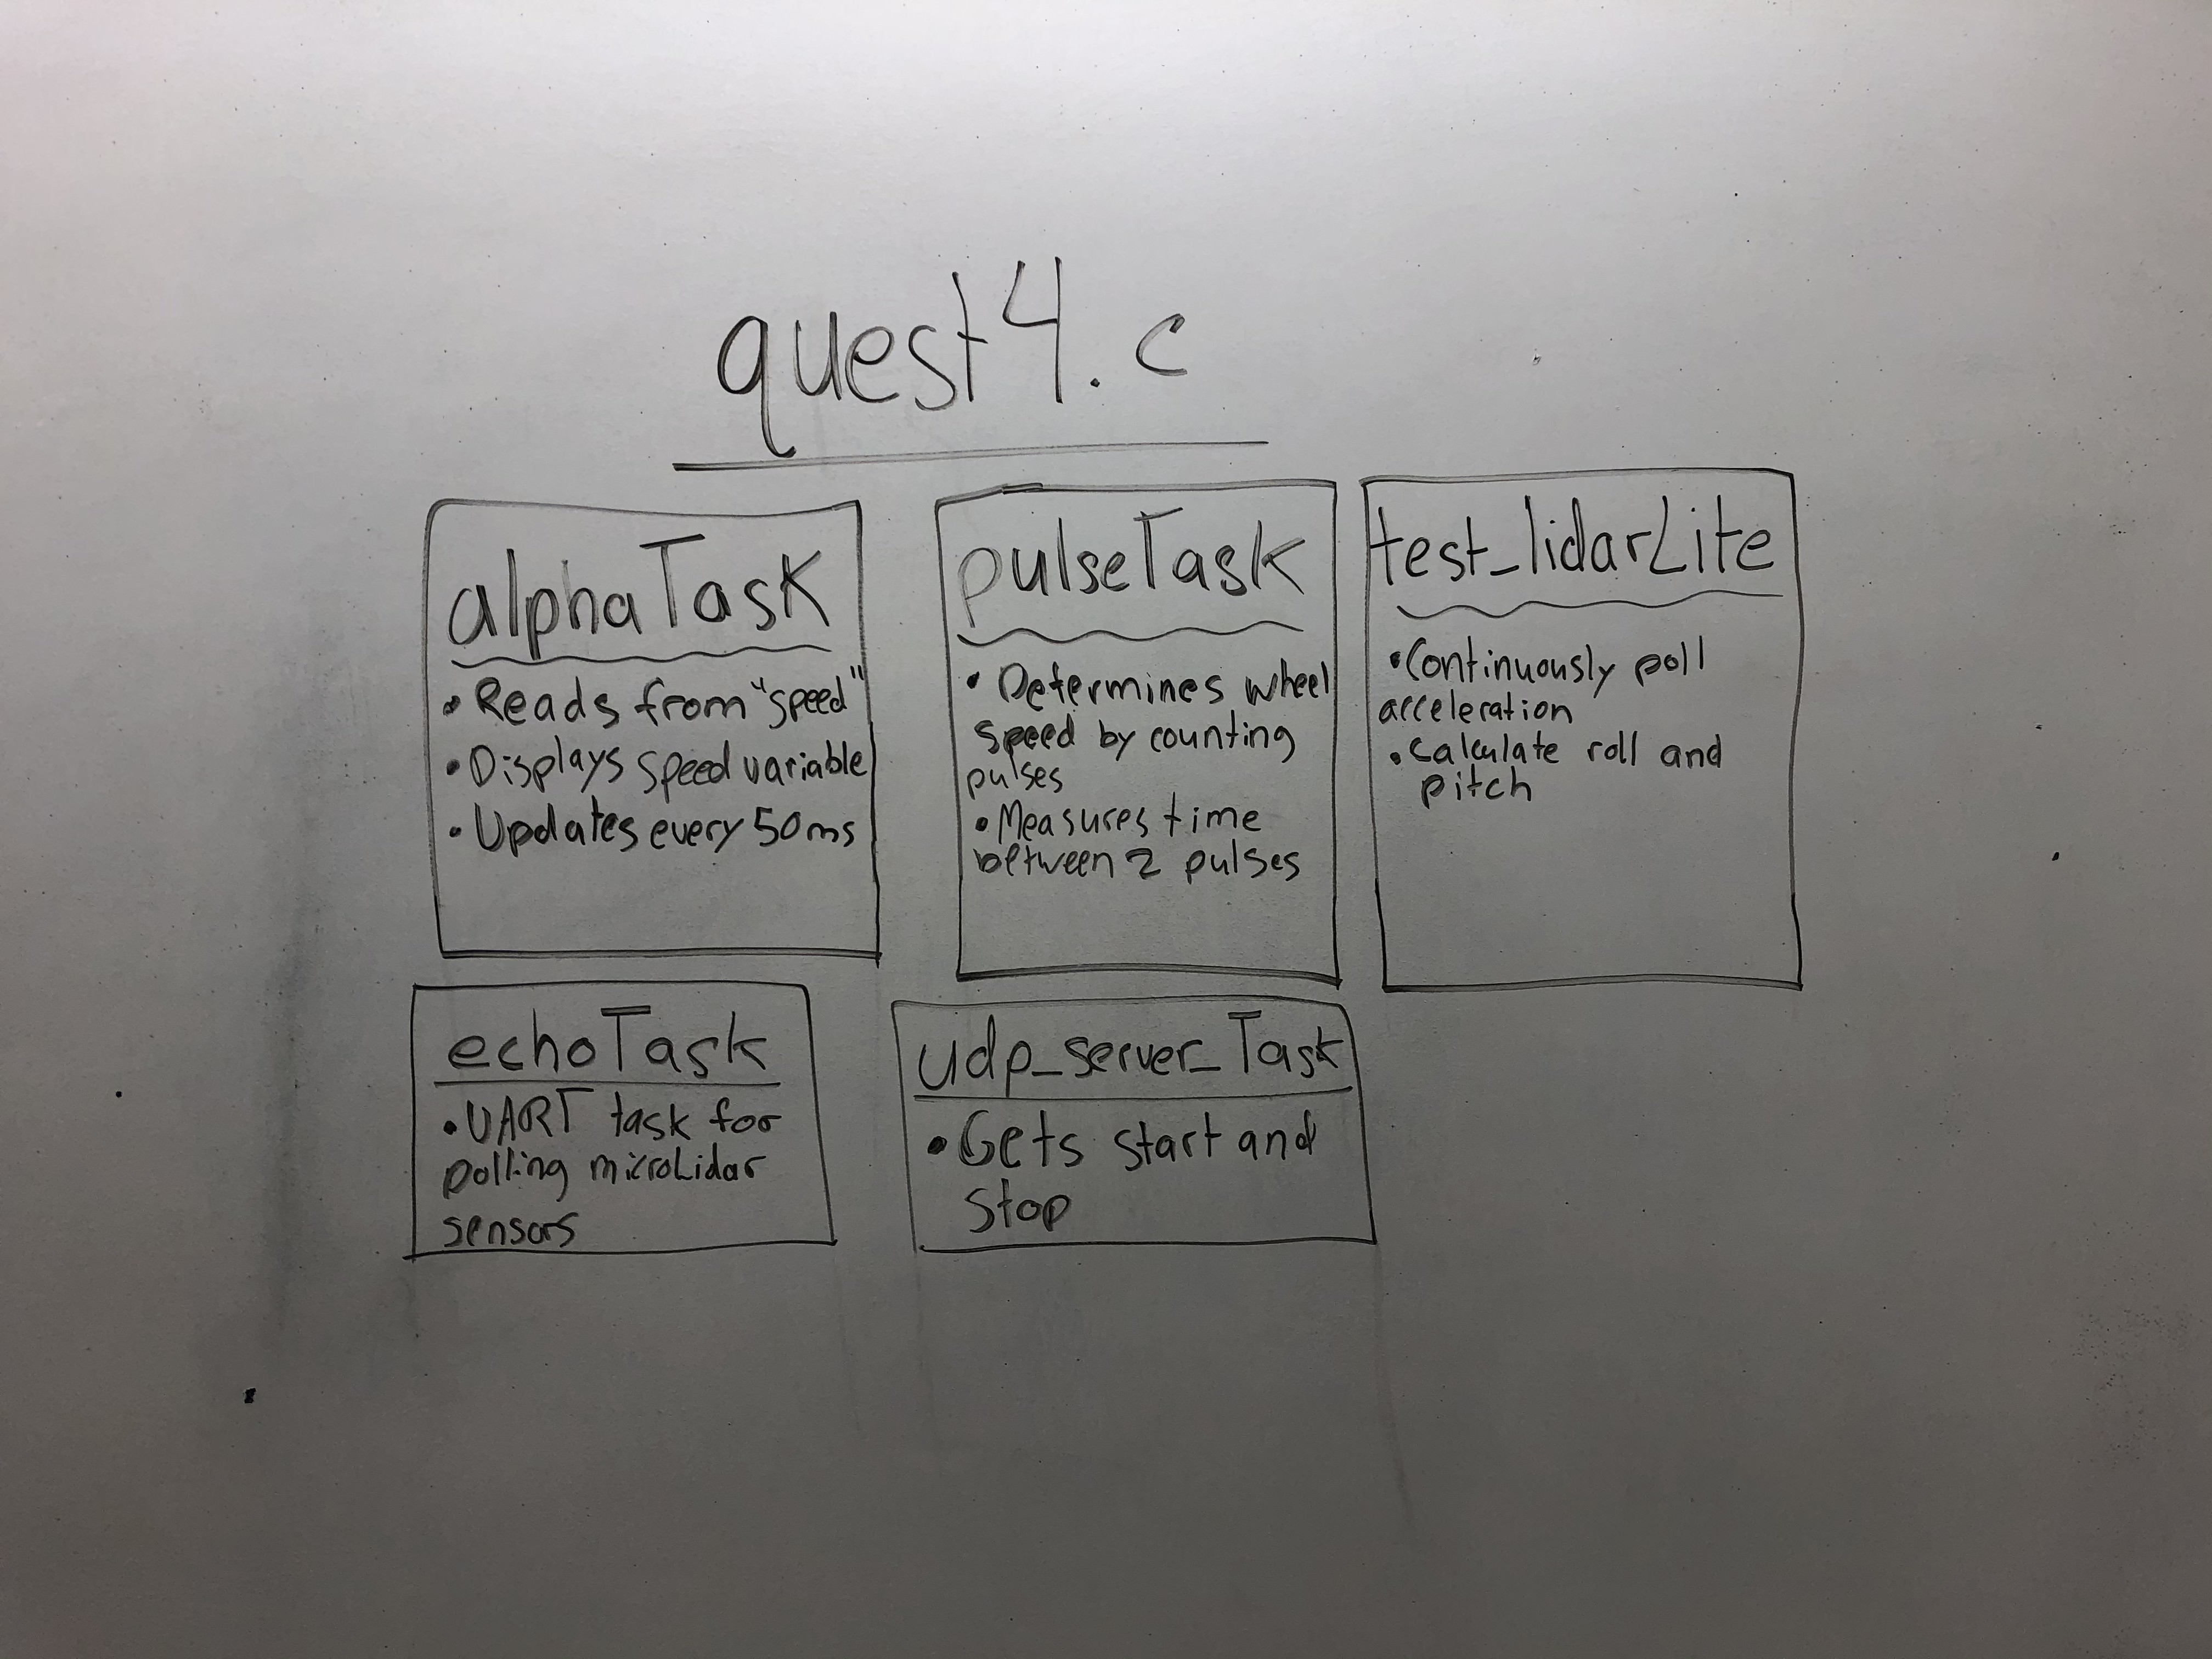 quest4.c
alphaTask
• Reads from "speed"
• Displays speed variable
• Updates every 50ms
pulseTask
• Determines wheel
speed by counting
pulses
• Measures time
between 2 pulses
test_lidarLite
• Continuously poll
acceleration
• Calculate roll and
pitch
echoTask
• UART task for
polling microLidar
sensors
udp_server_Task
• Gets start and
stop